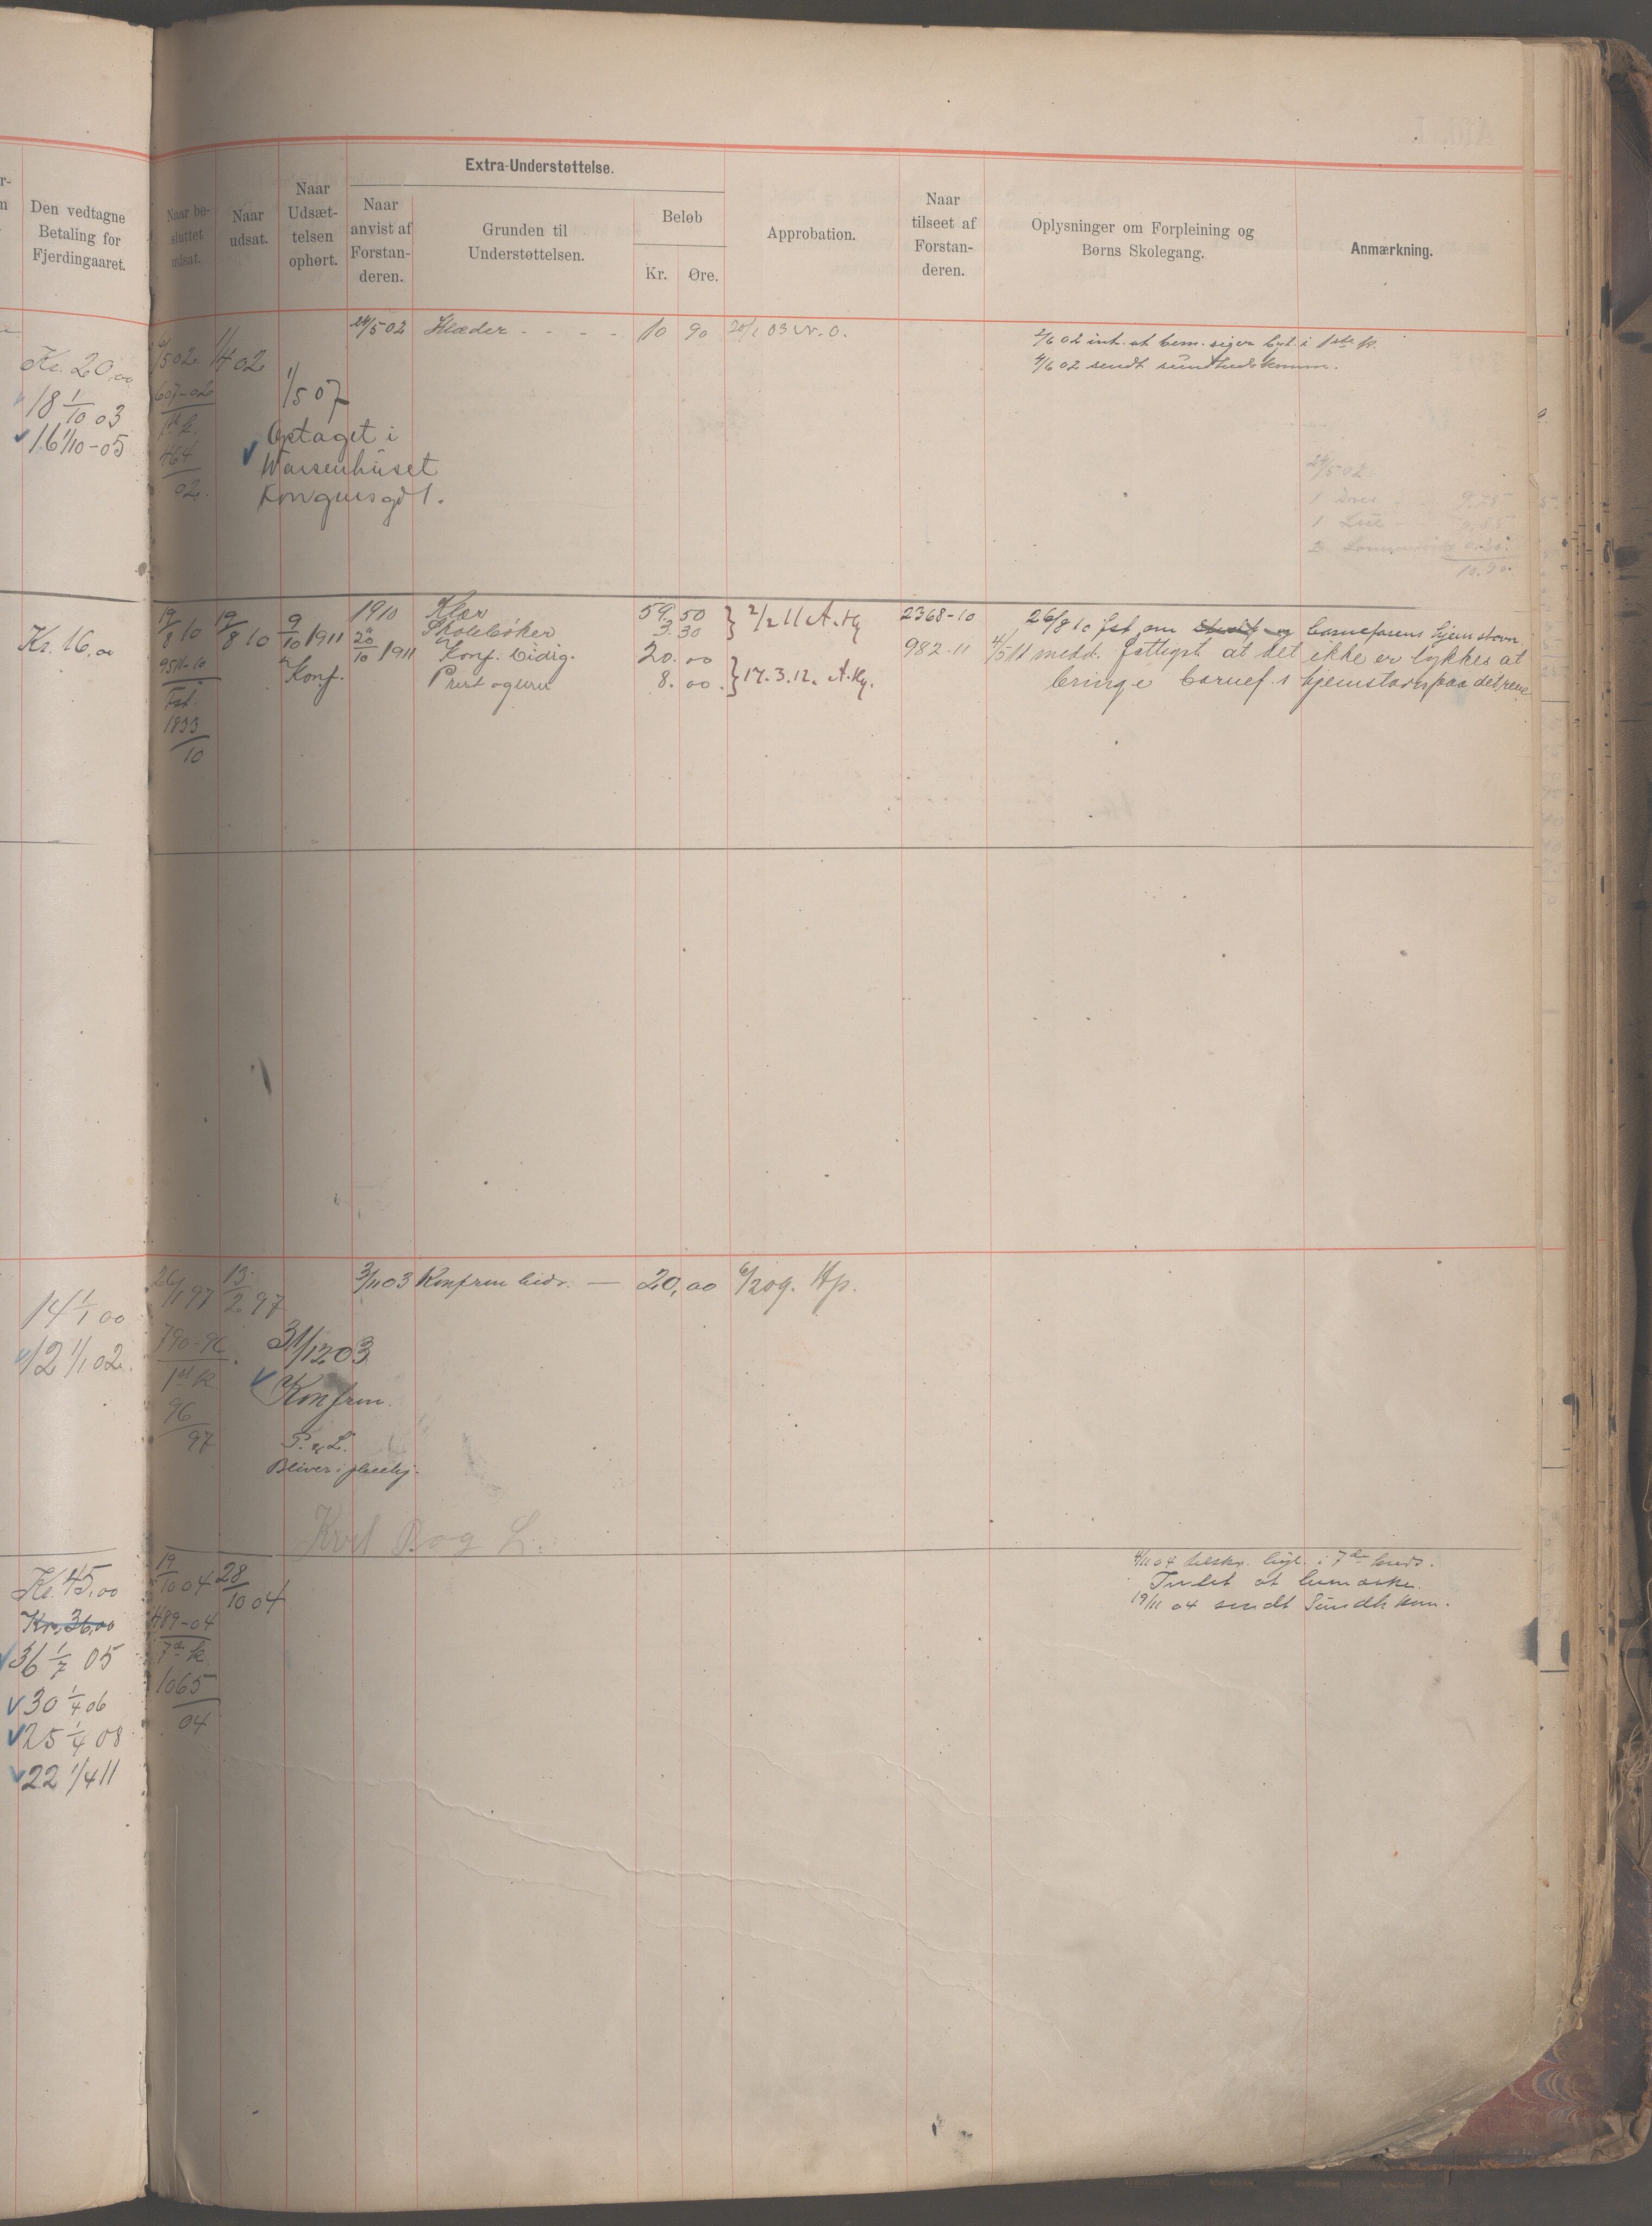 Den vedtagne
Betaling for
Fjerdingaaret.
Naar be-
sluttet
udsat.
Naar
udsat.
Naar
Udsæt-
telsen
ophørt.
Extra-Understøttelse.
Naar
anvist af
Forstan-
deren.
Grunden til
Understøttelsen.
Beløb
Kr. Øre.
Approbation.
Naar
tilseet af
Forstan-
deren.
Oplysninger om Forpleining og
Børns Skolegang.
Anmærkning.
Kr. 20,00
18 1/10 03
16 1/10-05
/5 02
607-02
1ste k.
464
02.
1/4 02
1/5 07
Optaget i
Waisenhuset
Kongensgd 1.
24/5 02 Klæder - - - - 10 90
2/6 02 int. at bem.
4/6 02 sendt sundhedskomm.
24/5 02
10.90
Kr. 16,00
19/8 10
951-10
Fst.
1833
10
19/8 10
9/10 1911
Konf.
1910 Klær 59,50
Skolebøker 3.30
20/10 1911 Konf. bidig. 20.00
Prest og 8.00
2/2 11 A.Kg
17.3.12. A.Kg.
2368-10
982-11
26/8 10 fst om barnefarens hjemstavn
4/5 11 medd. fattigst at det ikke er lykkes at
bringe barnef.s hjemstavn paa det rene
14 1/1 00
12 1/1 02.
26/1 97
790-96
1ste k
96
97
13/2 97
31/12 03
Konfrm.
P. & L.
Bliver i pleiehj.
3/11 03 Konfrm bidr. — 20,00
Bog L.
Kr. 45,00
Kr. 36,00
36 1/7 05
30 1/4 06
25 1/4 08
22 1/4 11
19/10 04
489-04
7de k
1065
04
28/10 04
4/11 04 beskr. i 7de
Intet at bemærke.
19/11 04 sendt Sundh kom.